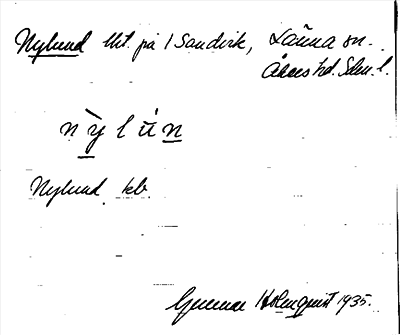 Nylund lht. på 1 Sandvik, Länna sn.
Åkers hd. Sdm. l.
nỳlún
Nylund kb
Gunnar Holmquist 1935.